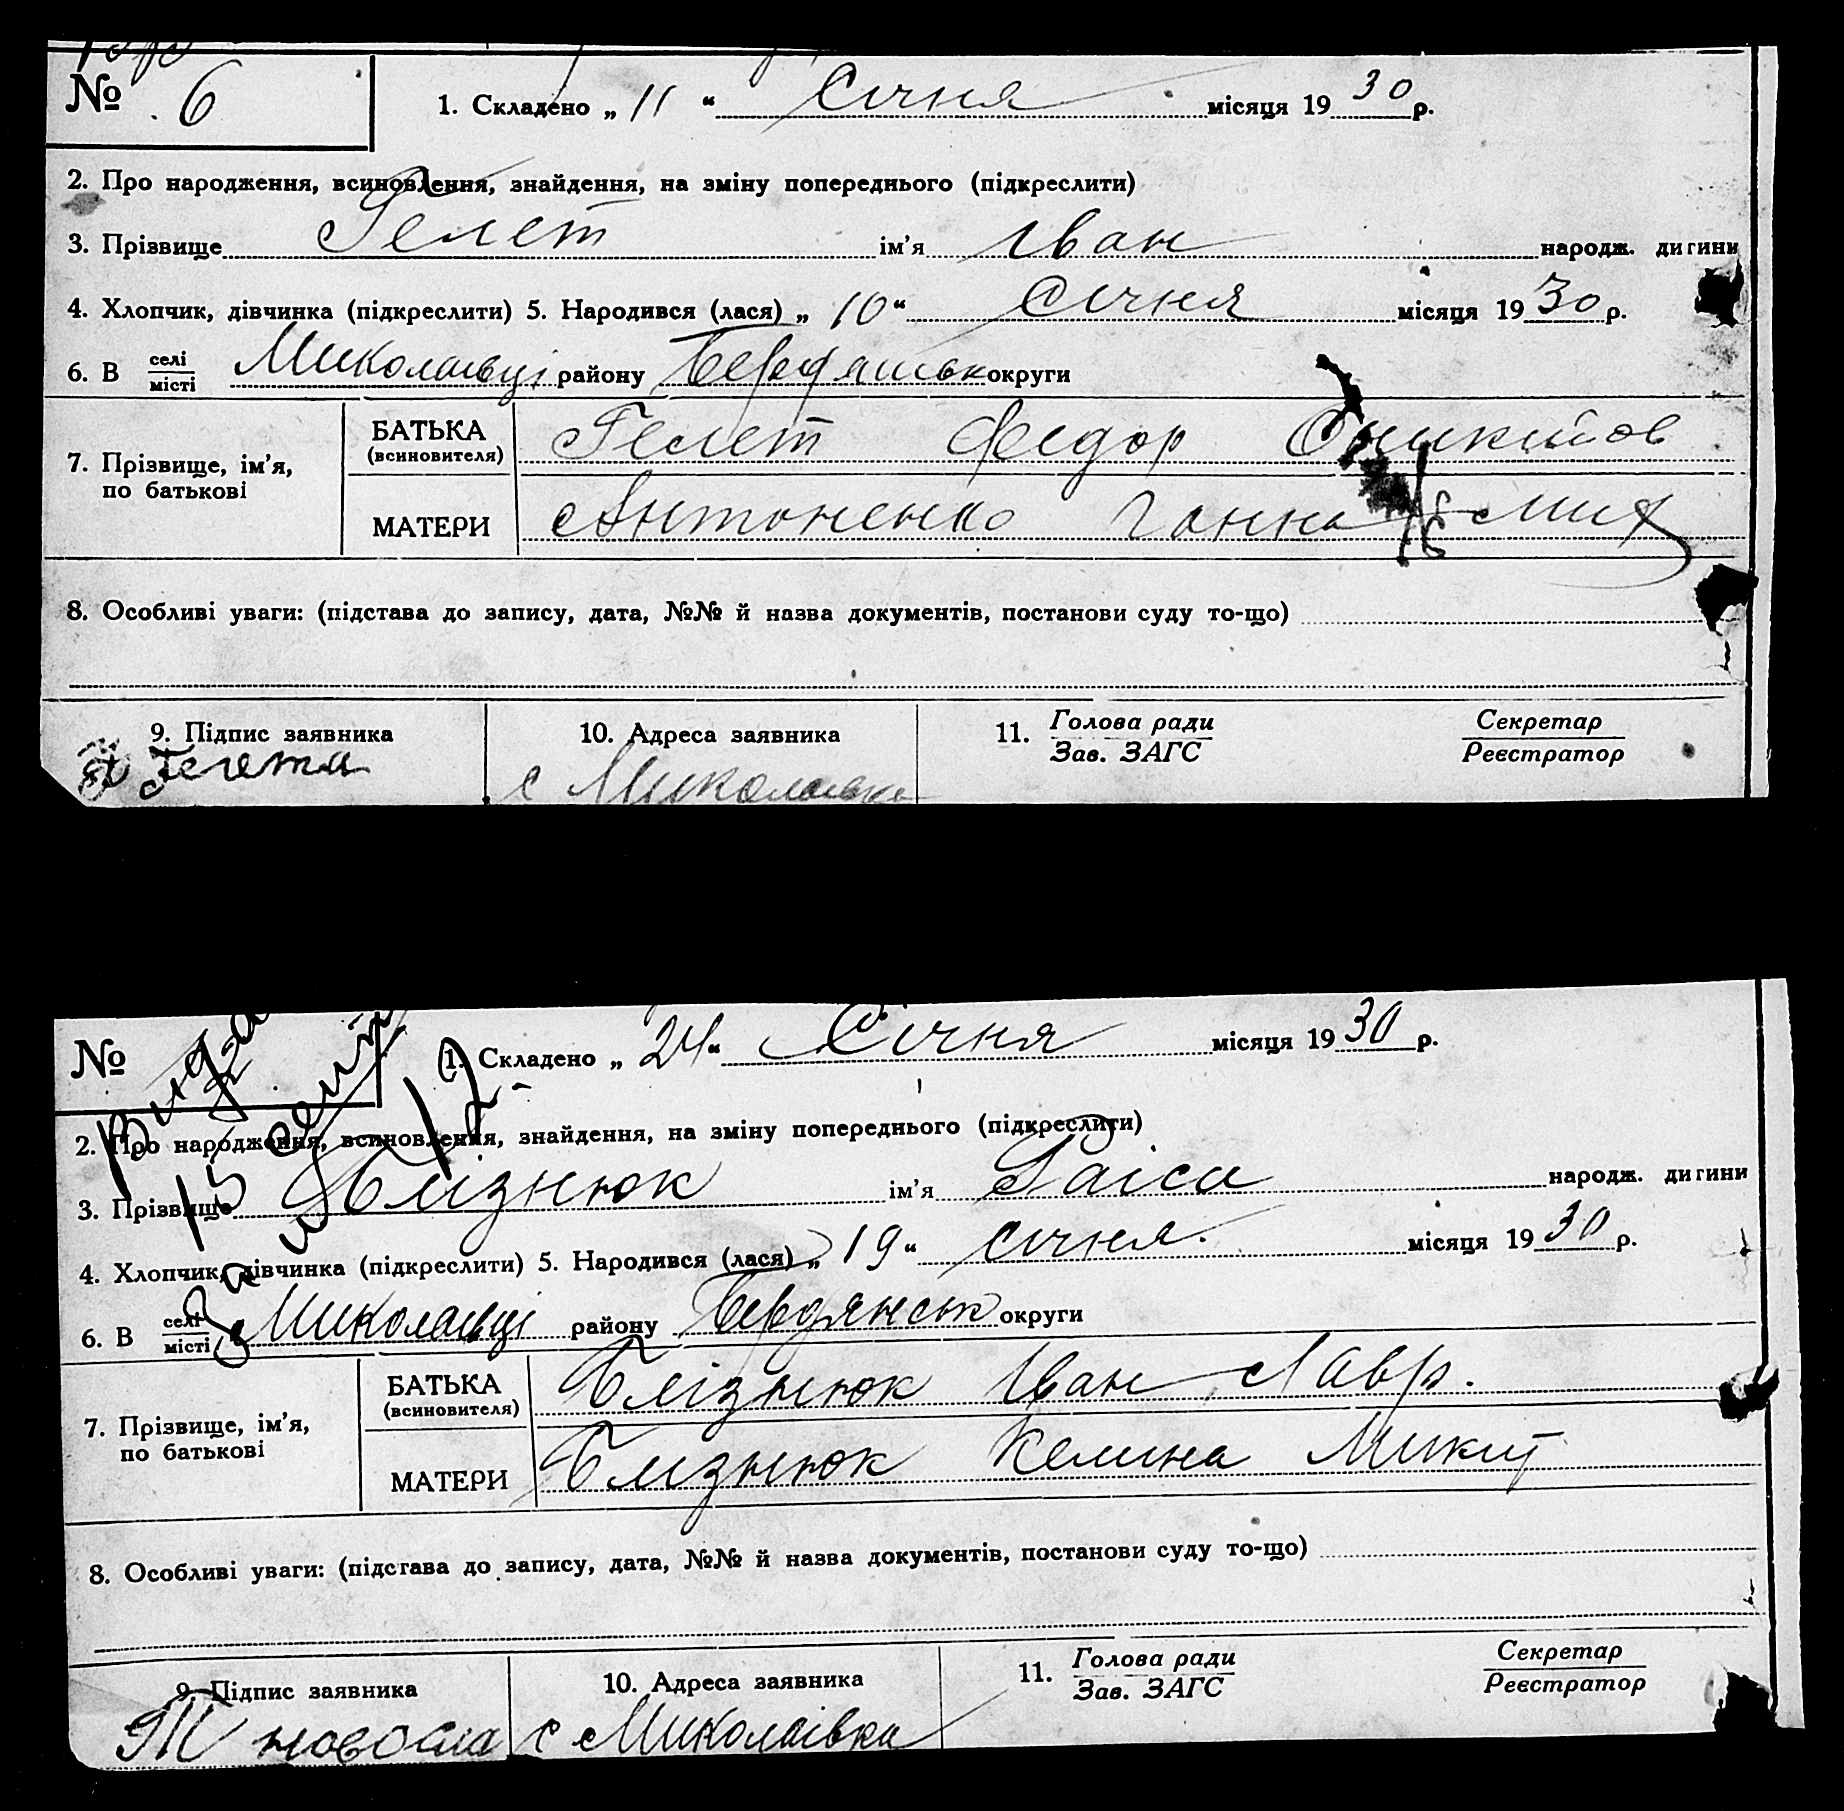 № 6 1. Складено „ 11 “ Січня місяця 1930 р.
2. Про народження, всиновлення, знайдення, на зміну попереднього (підкреслити)
3. Прізвище Гелет ім’я Іван народж. дитини
4. Хлопчик, дівчинка (підкреслити) 5. Народився (лася) „ 10 “ Січня місяця 1930 р.
6. В селі місті Миколаївці району Бердянськ округи
7. Прізвище, ім’я, по батькові БАТЬКА (всиновителя) Гелет Федор
МАТЕРИ Антоненко Ганна
8. Особливі уваги: (підстава до запису, дата, №№ й назва документів, постанови суду то-що)
9. Підпис заявника 10. Адреса заявника 11. Голова ради Зав. ЗАГС Секретар Реєстратор
Гелета с Миколаївка
№ 1. Складено „ 24 “ Січня місяця 1930 р.
2. Про народження, всиновлення, знайдення, на зміну попереднього (підкреслити)
3. Прізвище Блізнюк ім’я Раіса народж. дитини
4. Хлопчик, дівчинка (підкреслити) 5. Народився (лася) „ 19 “ січня місяця 1930 р.
6. В селі місті Миколаївці району Бердянськ округи
7. Прізвище, ім’я, по батькові БАТЬКА (всиновителя) Блізнюк Іван Лавр.
МАТЕРИ Блізнюк Келина Микит
8. Особливі уваги: (підстава до запису, дата, №№ й назва документів, постанови суду то-що)
9. Підпис заявника 10. Адреса заявника 11. Голова ради Зав. ЗАГС Секретар Реєстратор
с Миколаівка